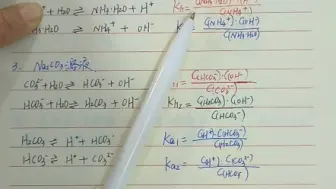 + H₂O ⇌ NH₃·H₂O + H⁺ Kh = c(NH₃·H₂O)·c(H⁺) / c(NH₄⁺)
NH₃·H₂O ⇌ NH₄⁺ + OH⁻ c(NH₄⁺)·c(OH⁻) / c(NH₃·H₂O)
3. Na₂CO₃溶液
CO₃²⁻ + H₂O ⇌ HCO₃⁻ + OH⁻ c(HCO₃⁻)·c(OH⁻) / c(CO₃²⁻)
HCO₃⁻ + H₂O ⇌ H₂CO₃ + OH⁻ Kh₂ = c(H₂CO₃)·c(OH⁻) / c(HCO₃⁻)
H₂CO₃ ⇌ H⁺ + HCO₃⁻ Ka₁ = c(H⁺)·c(HCO₃⁻) / c(H₂CO₃)
HCO₃⁻ ⇌ H⁺ + CO₃²⁻ Ka₂ = c(H⁺)·c(CO₃²⁻) / c(HCO₃⁻)